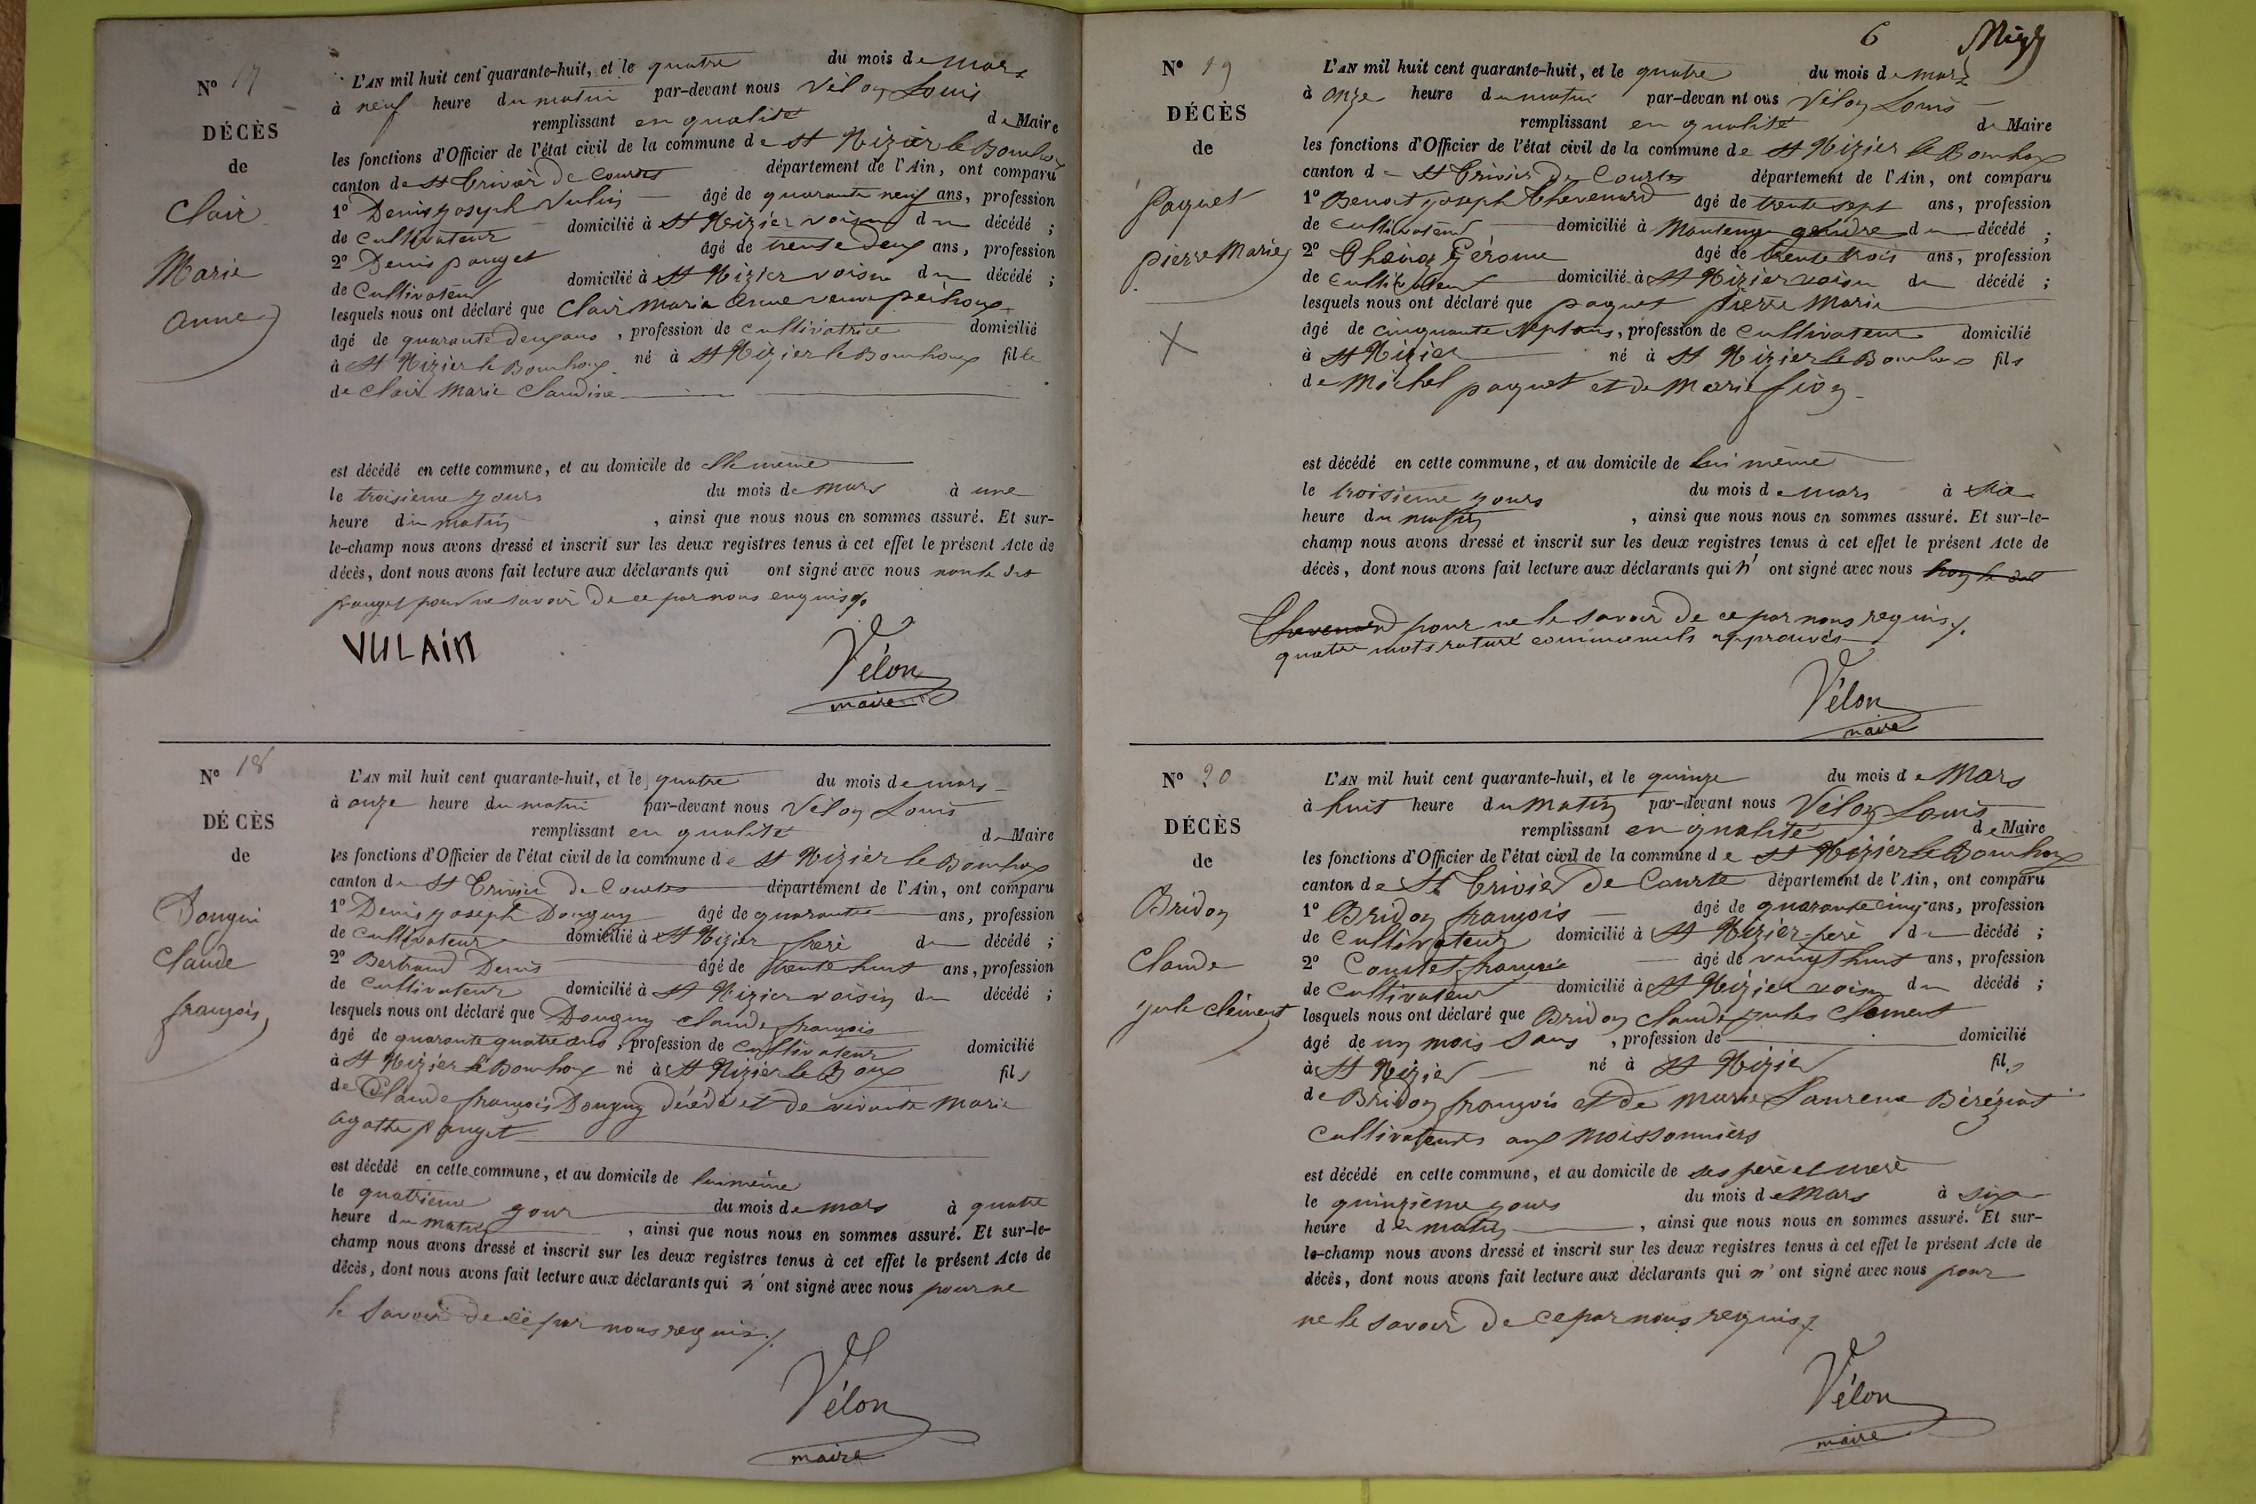 N° 17
DÉCÈS
de
Clair
Marie
anne
L'AN mil huit cent quarante-huit, et le quatre du mois de mars
à neuf heure du matin par-devant nous Vélon Louis
remplissant en qualité de Maire
les fonctions d'Officier de l'état civil de la commune de St Nizier le Bouchoux
canton de St Trivier De Courtes département de l'Ain, ont comparu
1° Denis Joseph Vulin âgé de quarante neuf ans, profession
de Cultivateur domicilié à St Nizier voisin du décédé ;
2° Denis pauget âgé de trente deux ans, profession
de Cultivateur domicilié à St Nizier voisin du décédé ;
lesquels nous ont déclaré que Clair Marie Anne veuve
âgé de quarante deux ans, profession de cultivatrice domicilié
à St Nizier le Bouchoux né à St Nizier le Bouchoux fille
de Clair Marie Claudine
est décédé en cette commune, et au domicile de Elle même
le troisieme jours du mois de mars à une
heure du matin, ainsi que nous nous en sommes assuré. Et sur-
le-champ nous avons dressé et inscrit sur les deux registres tenus à cet effet le présent Acte de
décès, dont nous avons fait lecture aux déclarants qui ont signé avec nous non le dit
pauget pour ne savoir De ce par nous enquis
VULAIN
Vélon
maire
N° 18
DÉCÈS
de
Dougui
Claude
françois
L'AN mil huit cent quarante-huit, et le quatre du mois de mars
à onze heure du matin par-devant nous Vélon Louis
remplissant en qualité de Maire
les fonctions d'Officier de l'état civil de la commune de St Nizier le Bouchoux
canton de St Trivier De Courtes département de l'Ain, ont comparu
1° Denis Joseph Douguy âgé de quarante ans, profession
de Cultivateur domicilié à St Nizier frere du décédé ;
2° Bertrand Denis âgé de trente huit ans, profession
de Cultivateur domicilié à St Nizier voisin du décédé ;
lesquels nous ont déclaré que Douguy Claude françois
âgé de quarante quatre ans, profession de Cultivateur domicilié
à St Nizier le Bouchoux né à St Nizier le Boux fils
de Claude françois Douguy décédé et de vivante Marie
agathe pauget
est décédé en cette commune, et au domicile de lui même
le quatrieme jour du mois de mars à quatre
heure du matin, ainsi que nous nous en sommes assuré. Et sur-le-
champ nous avons dressé et inscrit sur les deux registres tenus à cet effet le présent Acte de
décès, dont nous avons fait lecture aux déclarants qui n'ont signé avec nous pour ne
le savoir De ce par nous requis
Vélon
maire
6
N° 19
DÉCÈS
de
Paquet
pierre Marie
X
L'AN mil huit cent quarante-huit, et le quatre du mois de mars
à onze heure du matin par-devan nt ous Vélon Louis
remplissant en qualité de Maire
les fonctions d'Officier de l'état civil de la commune de St Nizier le Bouchoux
canton d St Trivier De Courtes département de l'Ain, ont comparu
1° Benoit Joseph Thevenard âgé de trente sept ans, profession
de cultivateur domicilié à Mantenay gendre du décédé ;
2° Gérome âgé de trente trois ans, profession
de cultivateur domicilié à St Nizier voisin du décédé ;
lesquels nous ont déclaré que paquet pierre Marie
âgé de cinquante sept ans, profession de Cultivateur domicilié
à St Nizier né à St Nizier le Bouchoux fils
de Michel paquet et de Marie fion
est décédé en cette commune, et au domicile de lui même
le troisieme jours du mois de mars à six
heure du matin, ainsi que nous nous en sommes assuré. Et sur-le-
champ nous avons dressé et inscrit sur les deux registres tenus à cet effet le présent Acte de
décès, dont nous avons fait lecture aux déclarants qui n' ont signé avec nous non le dit
Thevenard pour ne le savoir De ce par nous requis
quatre mots raturé comme nuls approuvés
Vélon
maire
N° 20
DÉCÈS
de
Bridon
Claude
jule clément
L'AN mil huit cent quarante-huit, et le quinze du mois de Mars
à huit heure du Matin par-devant nous Vélon Louis
remplissant en qualité de Maire
les fonctions d'Officier de l'état civil de la commune de St Nizier le Bouhoux
canton de St Trivier De Courte département de l'Ain, ont comparu
1° Bridon françois âgé de quarante cinq ans, profession
de Cultivateur domicilié à St Nizier perè d décédé ;
2° Coutet âgé de vingt huit ans, profession
de Cultivateur domicilié à St Nizier voisin du décédé ;
lesquels nous ont déclaré que Bridon Claude jules Clement
âgé de un mois Sans, profession de domicilié
à St Nizier né à St Nizier fils
de Bridon françois et de Marie Laurence Béréziat
Cultivateurs aux Moissonniers
est décédé en cette commune, et au domicile de ses perè et merè
le quinzieme jours du mois de Mars à six
heure de matin, ainsi que nous nous en sommes assuré. Et sur-
le-champ nous avons dressé et inscrit sur les deux registres tenus à cet effet le présent Acte de
décès, dont nous avons fait lecture aux déclarants qui n' ont signé avec nous pour
ne le savoir De ce par nous requis
Vélon
maire